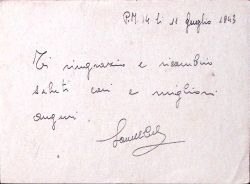 P.M. 14 li 11 luglio 1943
Ti ringrazio e ricambio
saluti cari e migliori
auguri